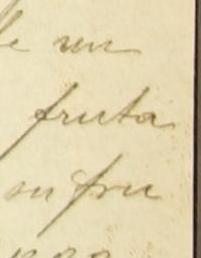 le un
fruta
su fru